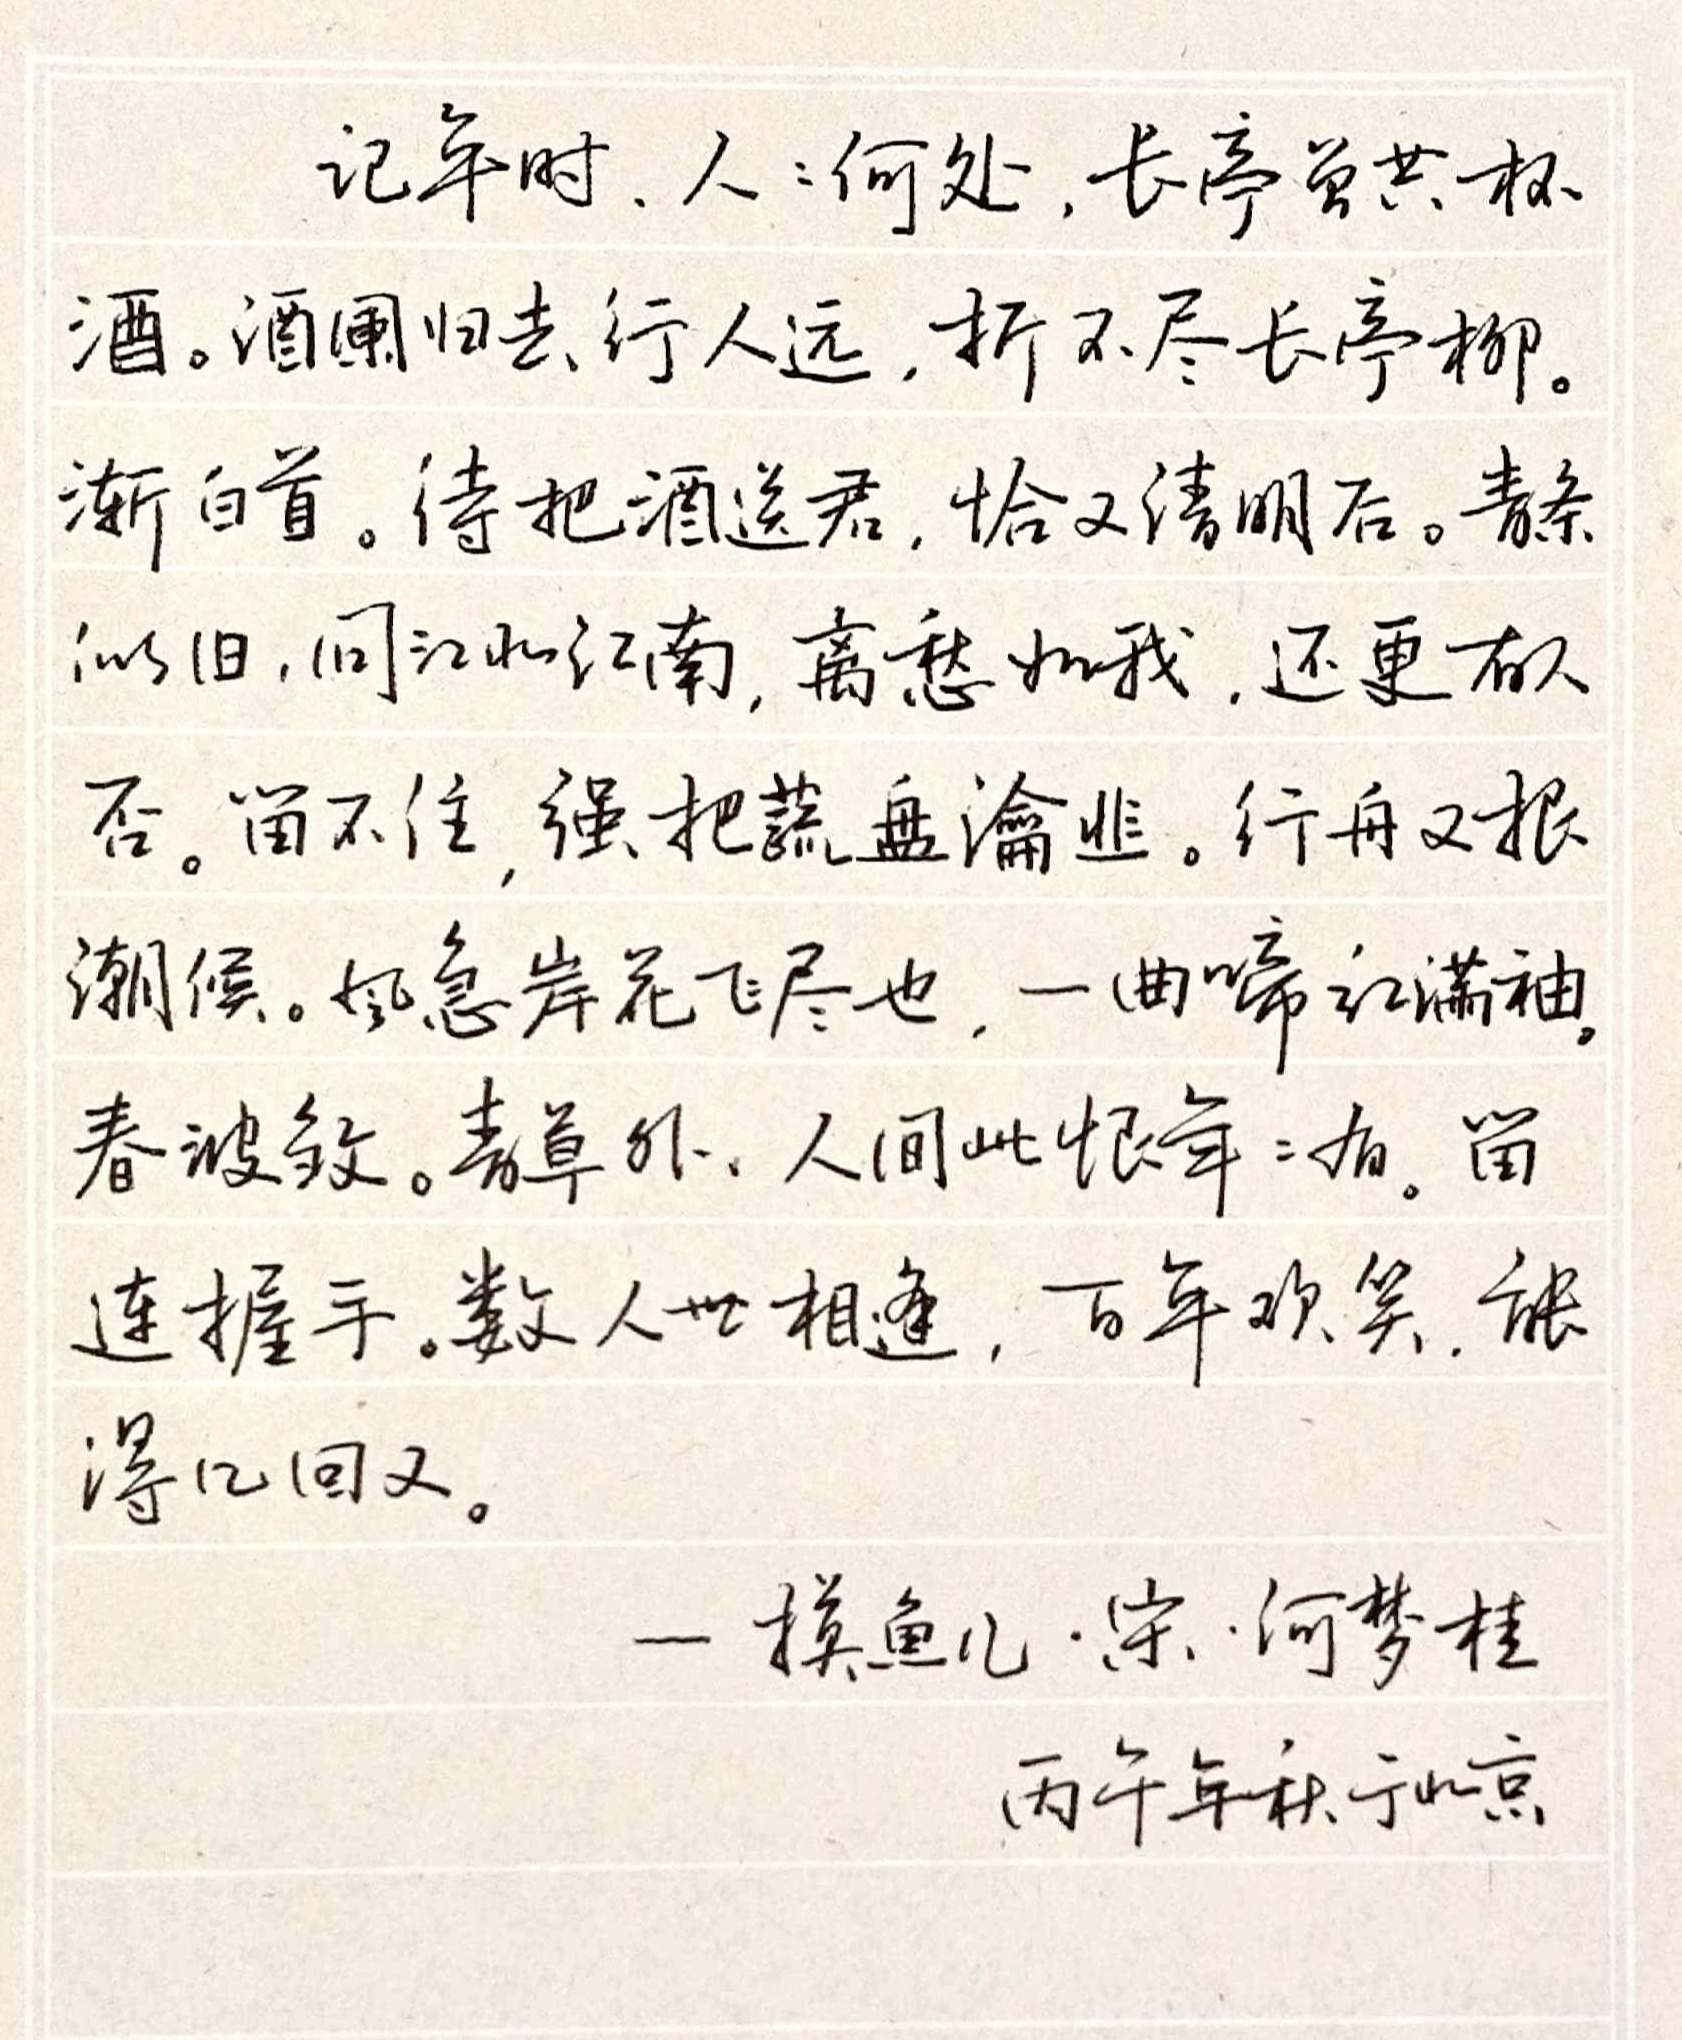 记年时、人:何处，长亭曾共杯
酒。酒阑归去行人远，折不尽长亭柳。
渐白首。待把酒送君，恰又清明后。青条
似旧，问江北江南，离愁如我，还更有人
否。留不住，强把蔬盘瀹韭。行舟又报
潮候。风急岸花飞尽也，一曲啼红满袖。
春波皱。青草外、人间此恨年:有。留
连握手。数人世相逢，百年欢笑，能
得几回又。
一摸鱼儿·宋·何梦桂
丙午年秋于北京